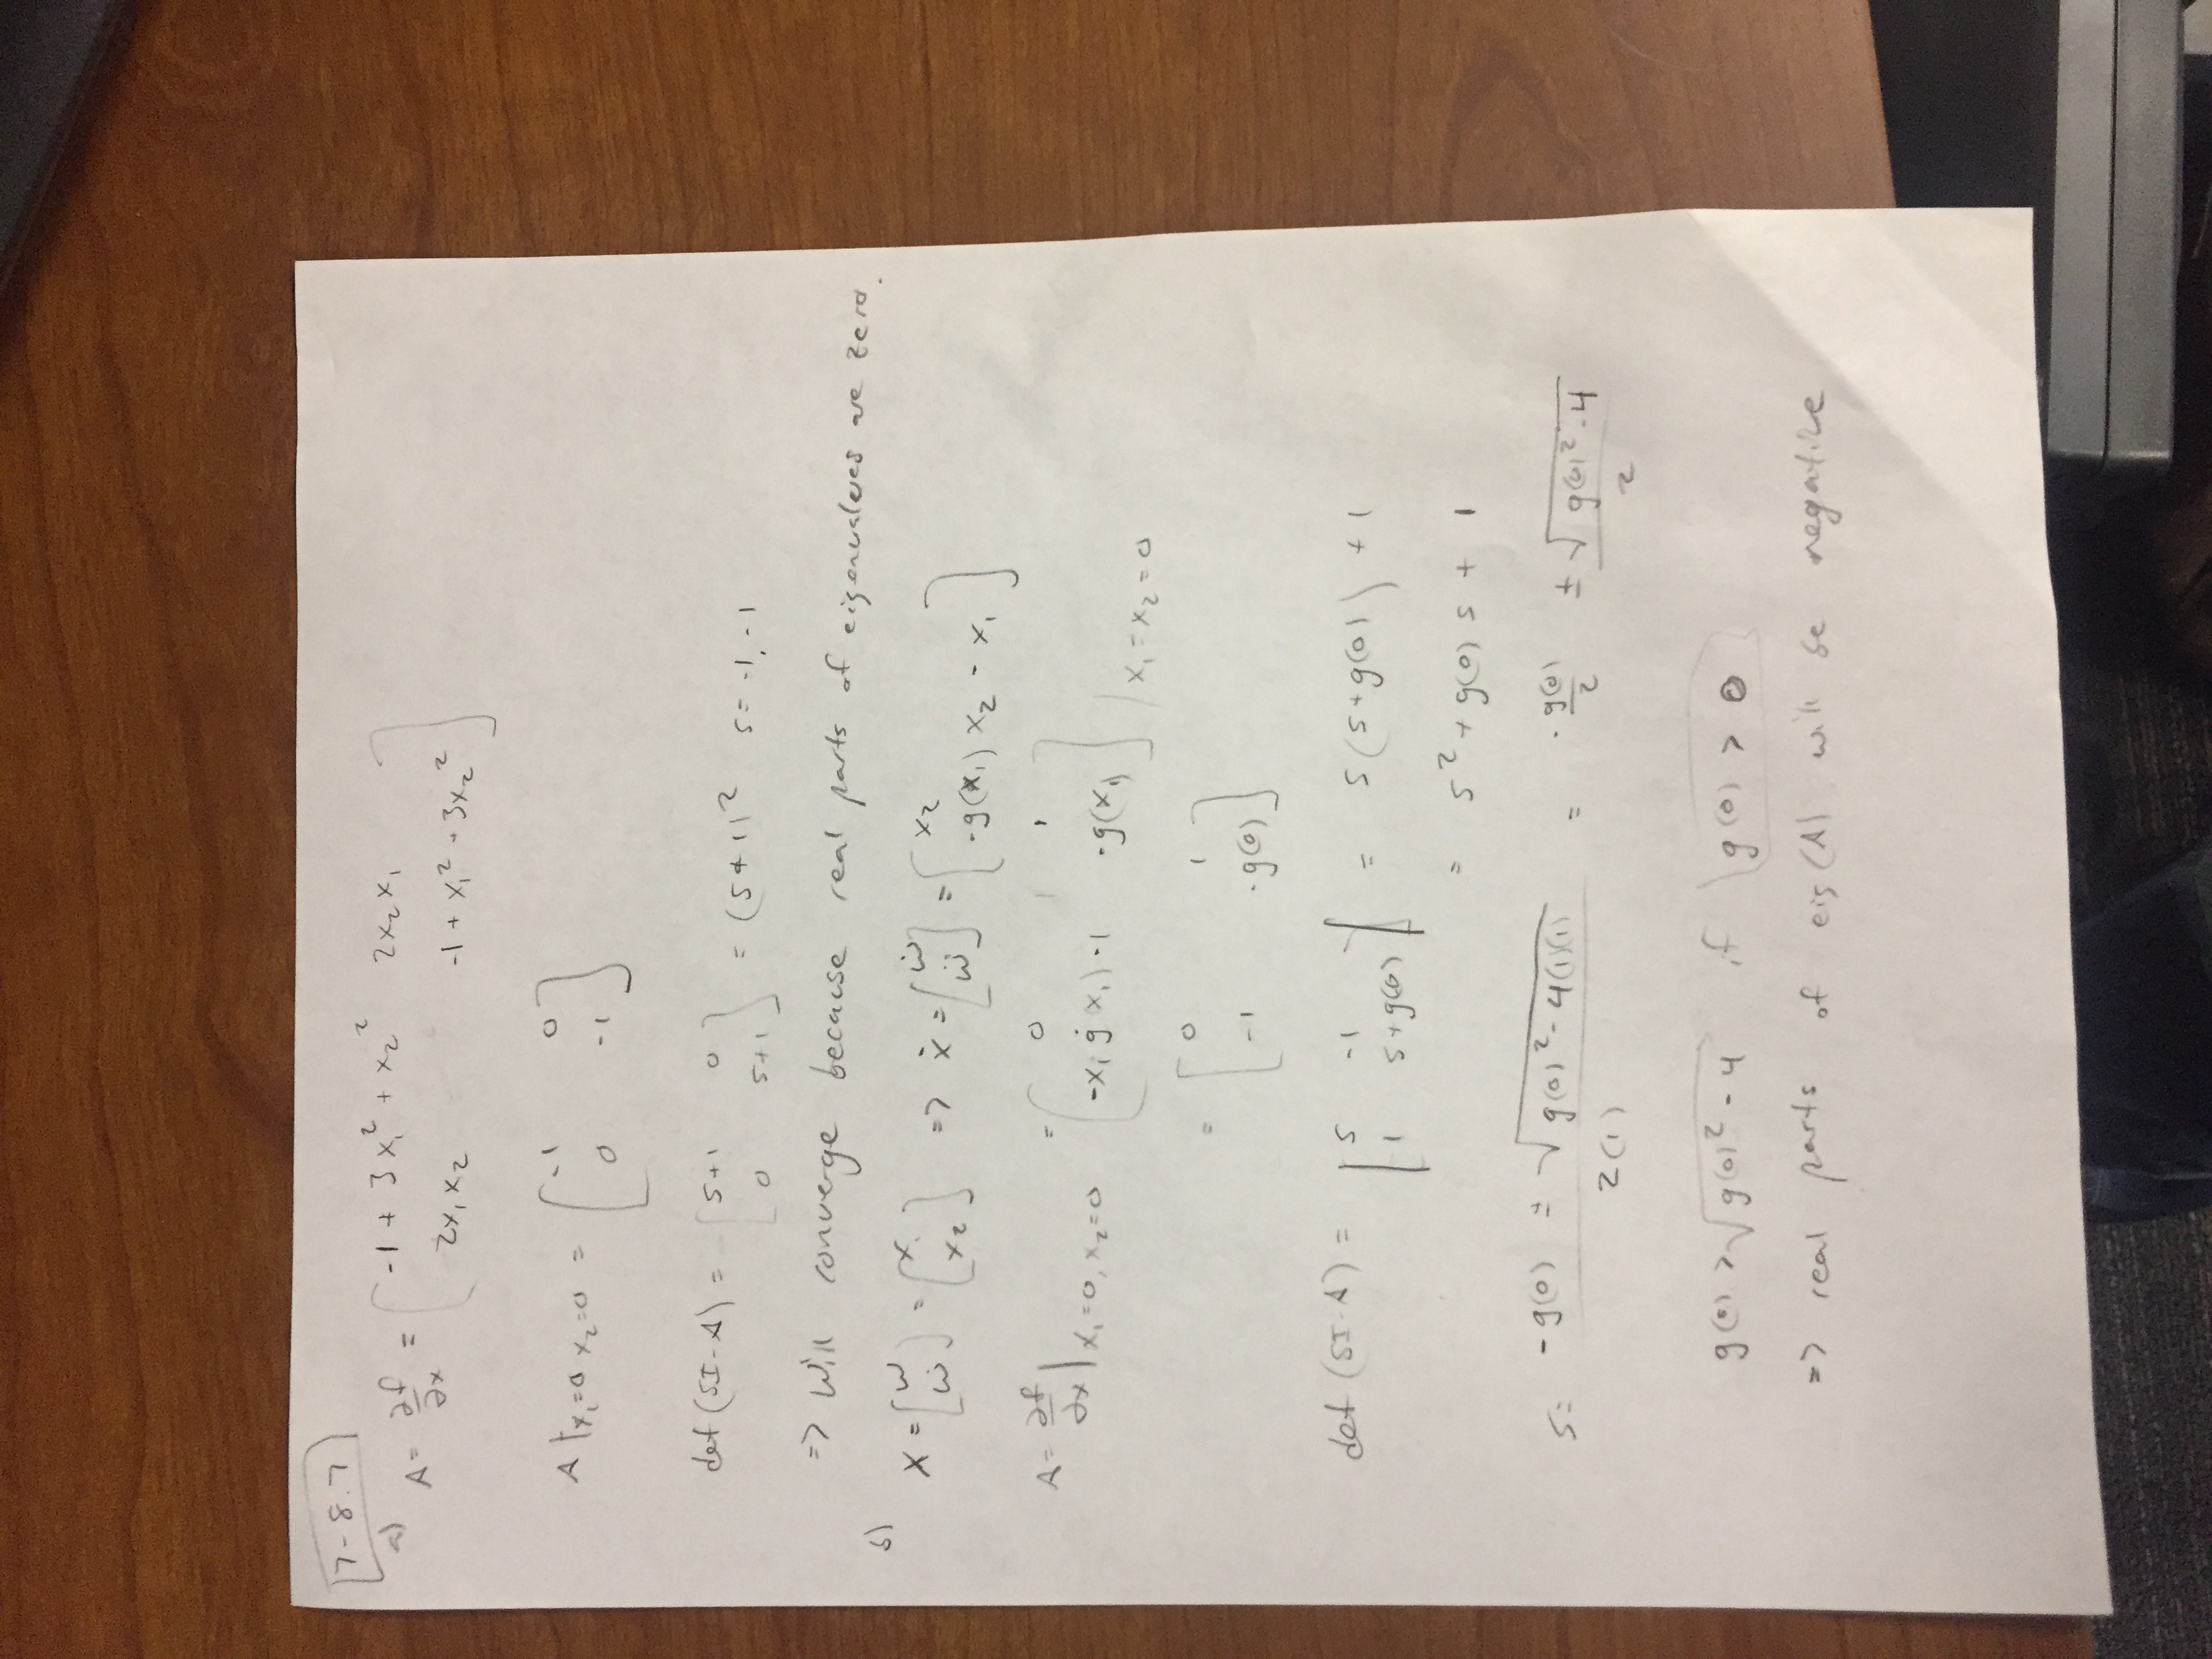 7-8.7
a) A = ∂f/∂x = [ -1 + 3x₁² + x₂²   2x₂x₁
2x₁x₂   -1 + x₁² + 3x₂² ]
A |x₁=0 x₂=0 = [ -1   0
0   -1 ]
det(SI-A) = [ S+1   0
0   S+1 ] = (S+1)²   S = -1, -1
=> Will converge because real parts of eigenvalues are zero.
b) X = [ w
ẇ ] = [ x₁
x₂ ] => ẋ = [ ẇ
ẅ ] = [ x₂
-g(x₁) x₂ - x₁ ]
A = ∂f/∂x |x₁=0, x₂=0 = [ 0   1
-x₁ ġ(x₁) - 1   -g(x₁) ] |x₁=x₂=0
= [ 0   1
-1   -g(0) ]
det(SI-A) = | S   -1
1   S+g(0) | = S(S+g(0)) + 1
= S² + g(0) S + 1
S = (-g(0) ± √(g(0)² - 4(1)(1))) / 2(1) = -g(0)/2 ± √(g(0)² - 4) / 2
g(0) > √(g(0)² - 4)   if   g(0) > 0
=> real parts of eig(A) will be negative